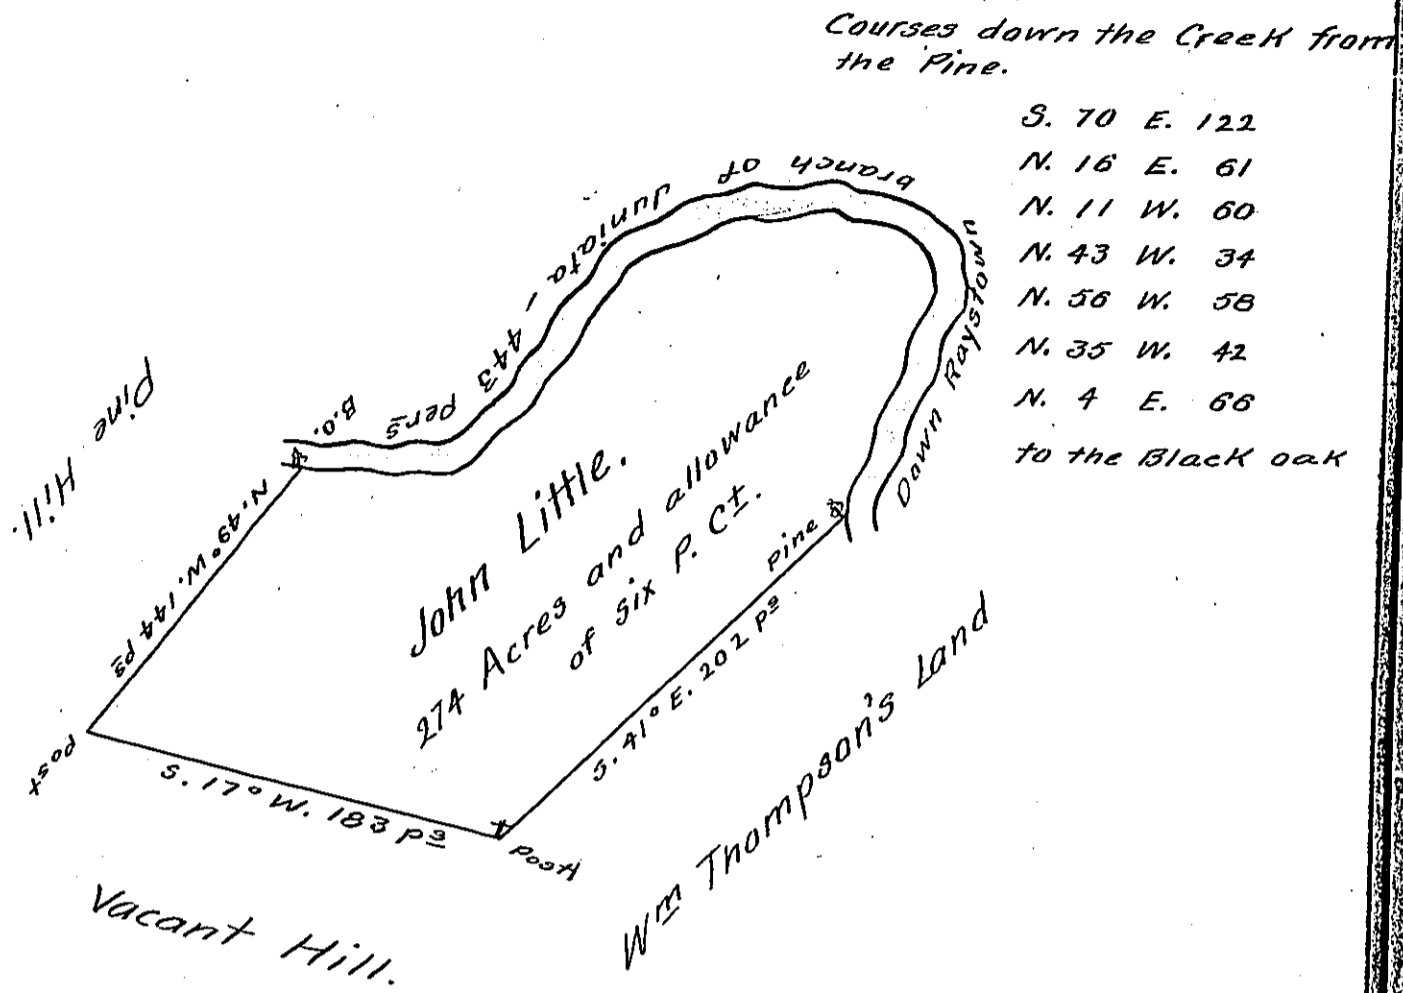 Courses down the Creek from
the Pine.
S. 70 E. 122
N. 16 E. 61
N. 11 W. 60
N. 43 W. 34
N. 56 W. 58
N. 35 W. 42
N. 4 E. 66
to the Black oak
Down Raystown branch of Juniata - 443 pers
B.O.
Pine Hill.
N. 49° W. 144 ps
John Little.
274 Acres and allowance
of six P. Ct.
Pine
S. 41° E. 202 ps
Post
S. 17° W. 183 ps
Post
Wm Thompson's Land
Vacant Hill.